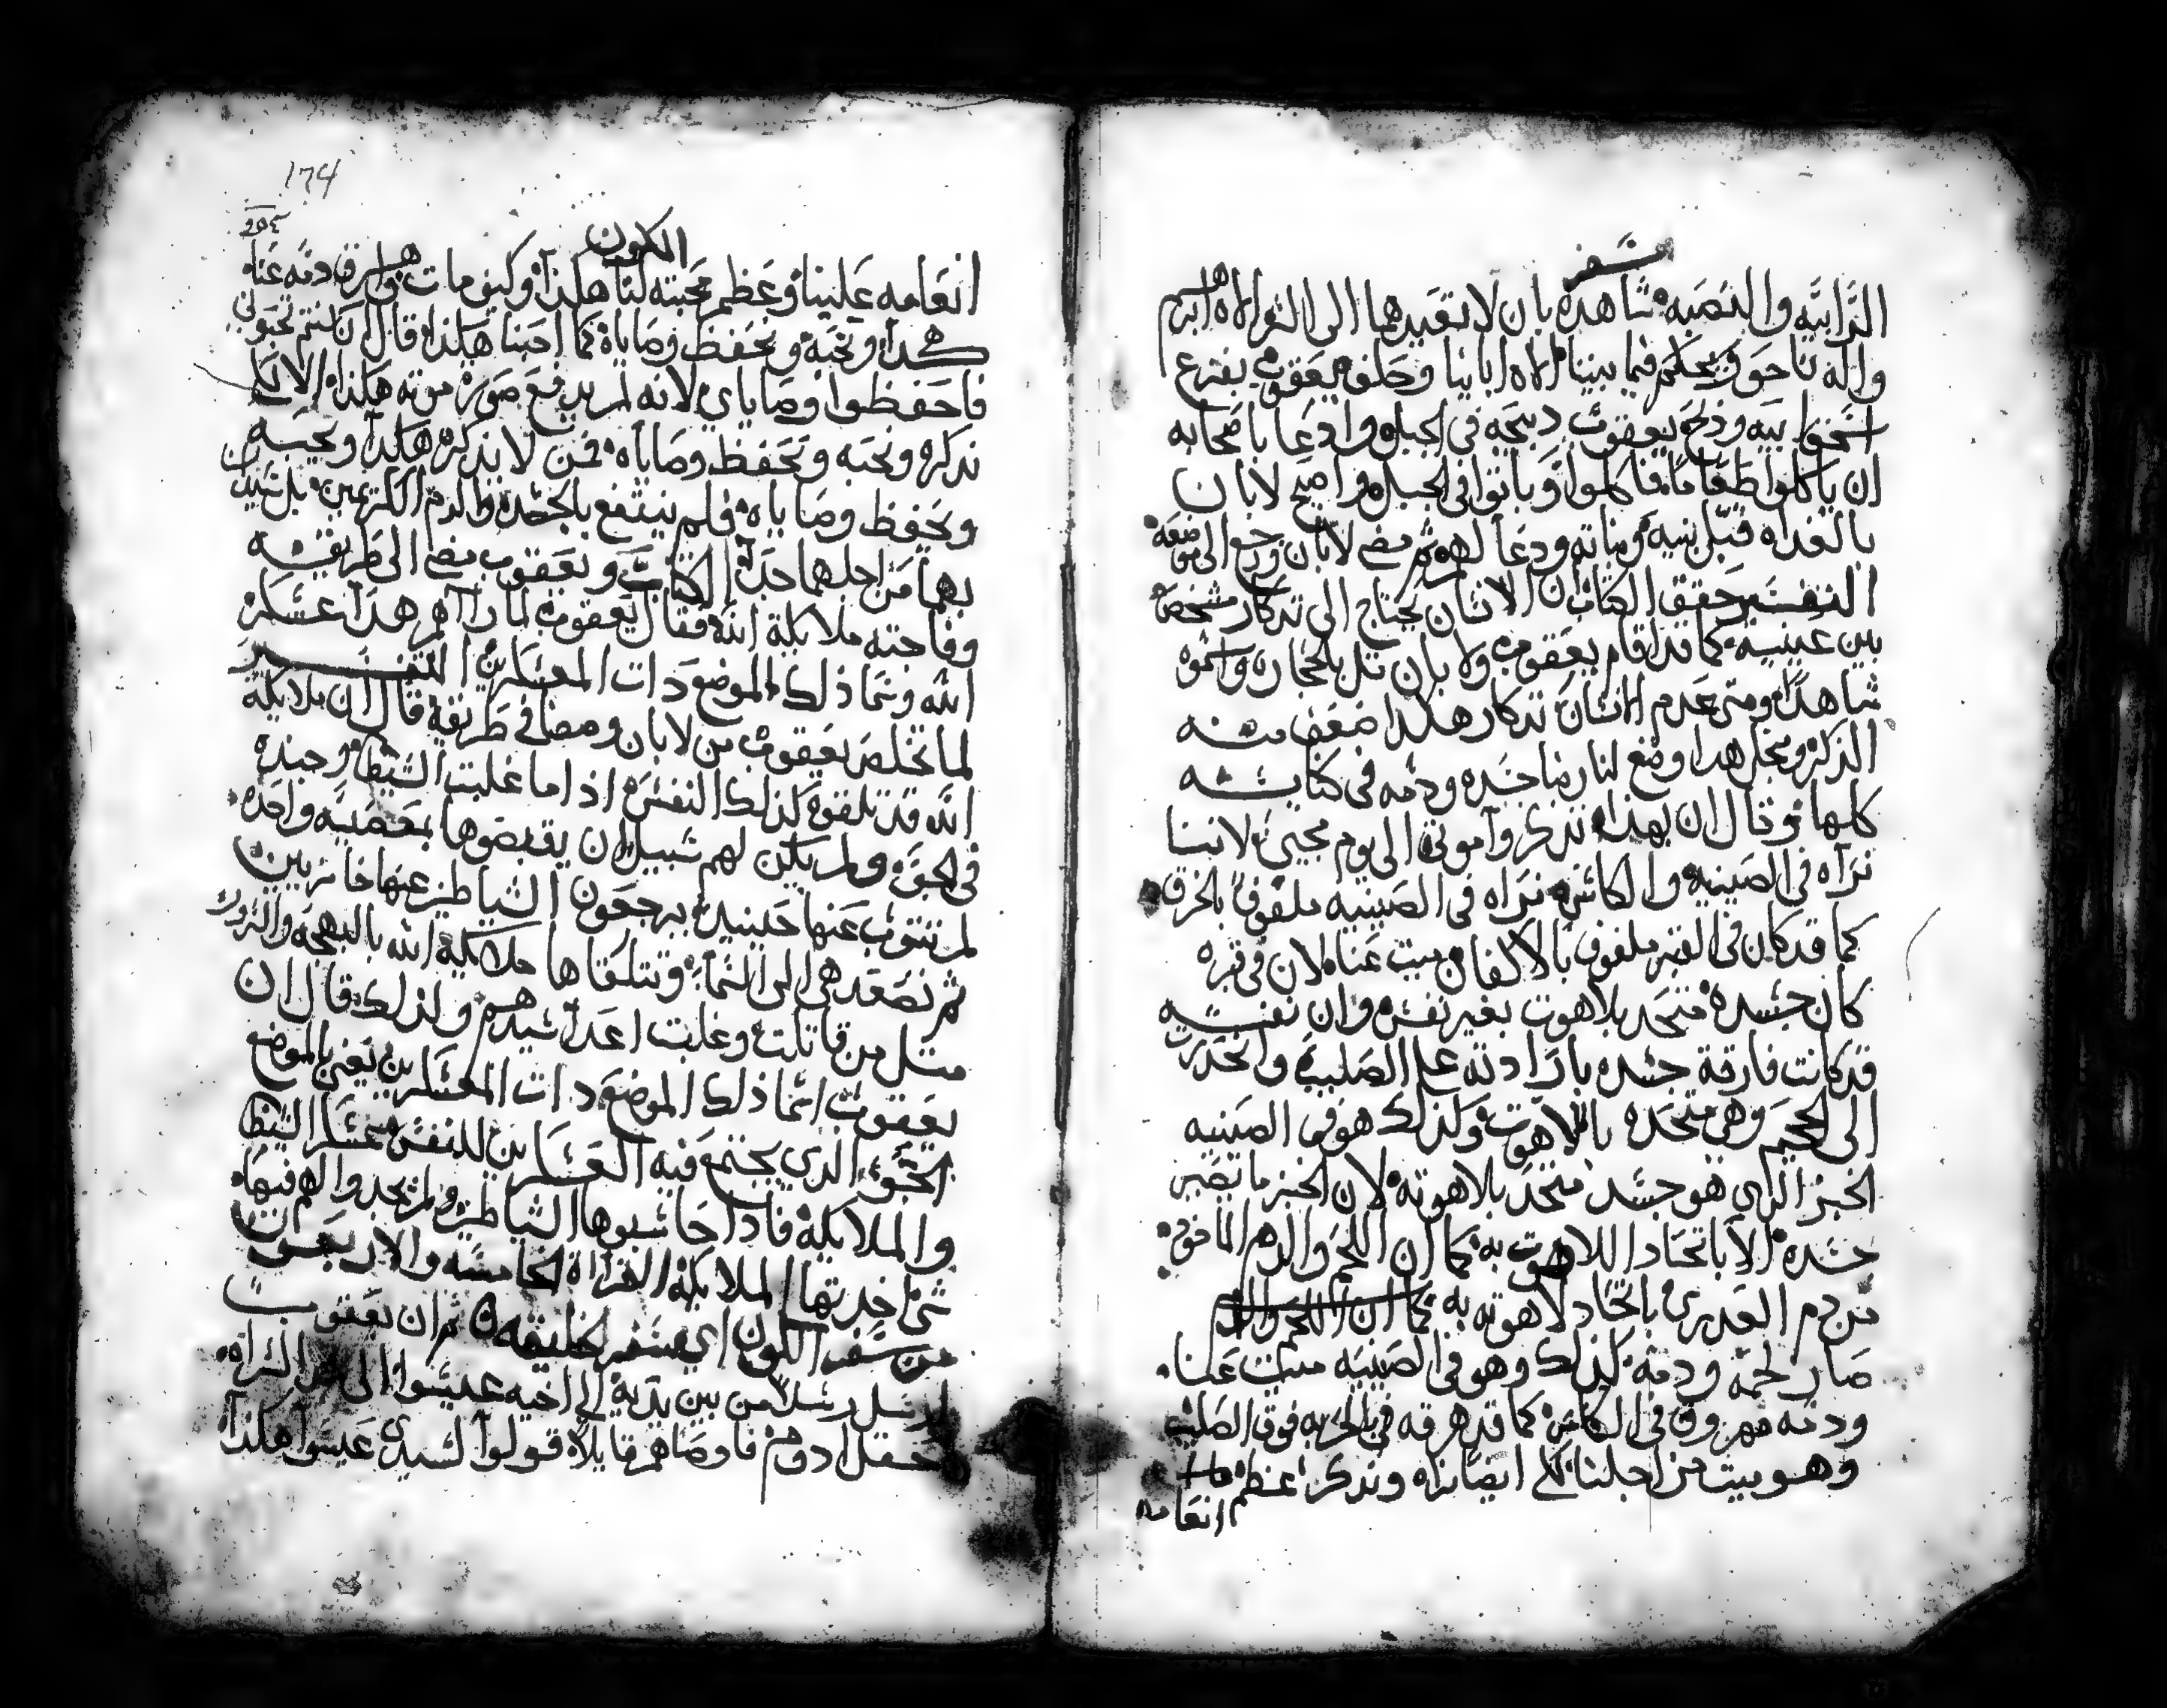 سفر
الرابيه والنصبه شاهده بان لا تعديهما الى الشر الاه ابرهيم
واله ناحور يحكم فيما بيننا الاه ابائنا وحلف يعقوب بفزع
اسحق ابيه وذبح يعقوب دبيحه في الجبل وادعا باصحابه
ان ياكلوا طعاما فاكلوا وباتوا في الجبل واصبح لابان
بالغداه قبل بنيه وبناته ودعا لهم ثم مضى لابان ورجع الى موضعه
التفسير حقق الكتاب ان الانسان يحتاج الى تدكار شخص
بين عينيه كما قد اقام يعقوب ولابان تل بالحجاره واسموه
شاهدا ومتى عدم الانسان تدكار هكدا ضعف منه
الذكر ومجل هدا وضع لنا رضا جسده ودمه في كنايسه
كلها وقال ان بهذا تدكروا موتي الى يوم مجيي لاننا
نراه في الصينيه والكاس نراه في الصينيه ملفوف بالخرق
كما قد كان في القبر ملفوف بالاكفان ميت عنا لان في قبره
كان جسده متحد بلاهوت بغير نفس وان نفسه
قد كانت فارقة جسده بارادته على الصليب وانحدرت
الى الجحيم وهي متحده باللاهوت ولذلك هو في الصينيه
الخبز الذي هو جسد متحد بلاهوته لان الخبز ما يصير
جسده الا باتحاد اللاهوت به كما ان اللحم والدم الماخوذ
من دم العدرى باتحاد لاهوته به كما ان اللحم والدم
صار لحمه ودمه كذلك وهو في الصينيه ميت عنا
ودمه مهروق في الكاس كما قد هرقه في الحربه فوق الصليب
وهو ميت من اجلنا لكي ايضا نراه وندكر عظم
انعامه
174
الكون
انعامه علينا وعظم محبته لنا هكذا وكيف مات واهرق دمه عنا
هكدا ونحبه ونحفظ وصاياه كما احبنا هكذا قال ان كنتم تحبوني
فاحفظوا وصاياي لانه لم يدفع صورة موته هكذا الا لكي
ندكره ونحبه ونحفظ وصاياه فمن لا يذكره هكدا ويحبه
ويحفظ وصاياه فلم ينتفع بالجسد والدم الكريمين بل
بهما من اجلهما الكتاب ويعقوب مضى الى طريقه
وفاجته ملايكة الله فقال يعقوب لما راهم هدا عسكر
الله وسما ذلك الموضع دات المعسكرين التفسير
لما تخلص يعقوب من لابان ومضا في طريقه قال ان ملايكة
الله قد تلقوه كذلك النفس اذا ما غلبت الشيطان وجنده
في الجو ولم يكن لهم سبيل ان يقبضوها بمعصيه واحده
لم تتوب عنها حينيد يرجعون الشياطين عنها خايبين
ثم تصعد هي الى السماء وتتلقاها ملايكة الله بالبهجه والسرور
مثل من قاتلت وغلبت اعدا شيدهم ولذلك قال ان
يعقوب اسما ذلك الموضع دات المعسكرين يعني بالموضع
الجو الذي يجتمع فيه العسكرين للنفس عسكر الشيطان
والملايكة فادا حاسبوها الشياطين ولم يجدوا لهم فيها
شي اخدتها الملايكة القراة الخامسه والاربعون
من سفر الكون اي سفر الخليقه ثم ان يعقوب
ارسل رسلا من بين يديه الى اخيه عيسوا الى
حقل ادوم فاوصاهم قايلا قولوا لسيدي عيسوا هكذا